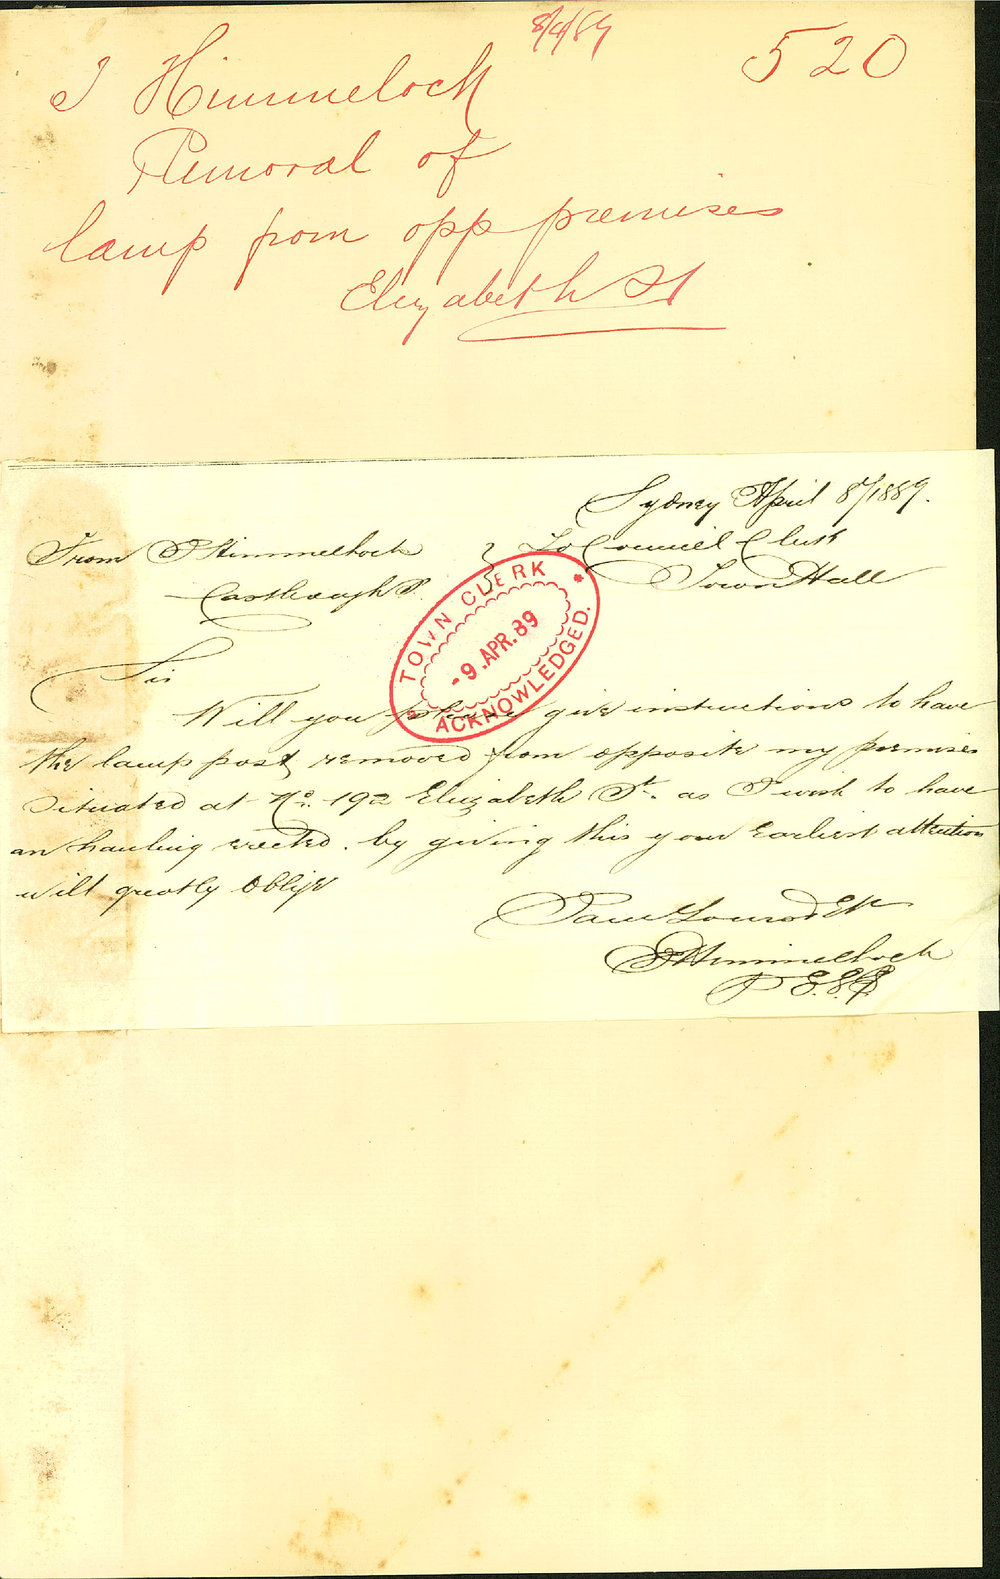 8/4/89
520
J Himmelock
Removal of
lamp from opp premises
Elizabeth St
Sydney April 8/1889.
From J Himmelhock
To Council Clerk
Castlereagh St.
Town Hall
TOWN CLERK
9. APR. 89
ACKNOWLEDGED.
Sir
Will you please give instructions to have
the lamp post removed from opposite my premises
situated at No. 192 Elizabeth St. as I wish to have
an hauling erected. by giving this your earliest attention
will greatly oblige
J Himmelhock